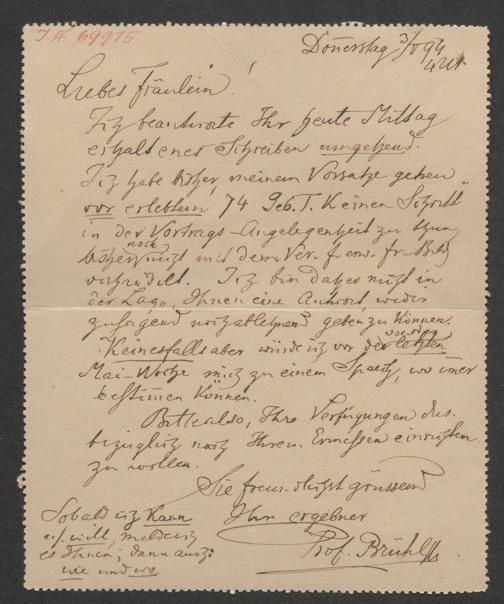 IN 69915
Donnerstag 3/V 94
4 Uhr
Liebes Fräulein!
Ich beantworte Ihr heute Mittag
erhaltenes Schreiben umgehend.
Ich habe bisher, meinem Vorsatze gemäß
vor erlebtem 74 Geb.T. keinen Schritt
in der Vortrags-Angelegenheit zu thun
bisher noch nicht mit dem Ver. f. erw. Fr. Bild
verhandelt. Ich bin daher nicht in
der Lage, Ihnen eine Antwort, weder
zusagend noch ablehnend geben zu können.
Keinesfalls aber würde ich vor der vorletzten
Mai-Woche mich zu einem Speech, wo immer
bestimmen können.
Bitte also, Ihre Verfügungen dies-
bezüglich nach Ihrem Ermessen einrichten
zu wollen.
Sie freundlichst grüssend
Ihr ergebner
Prof. Brühl
Sobald ich kann
u. will, melde ich
es Ihnen; dann auch:
wie und wo